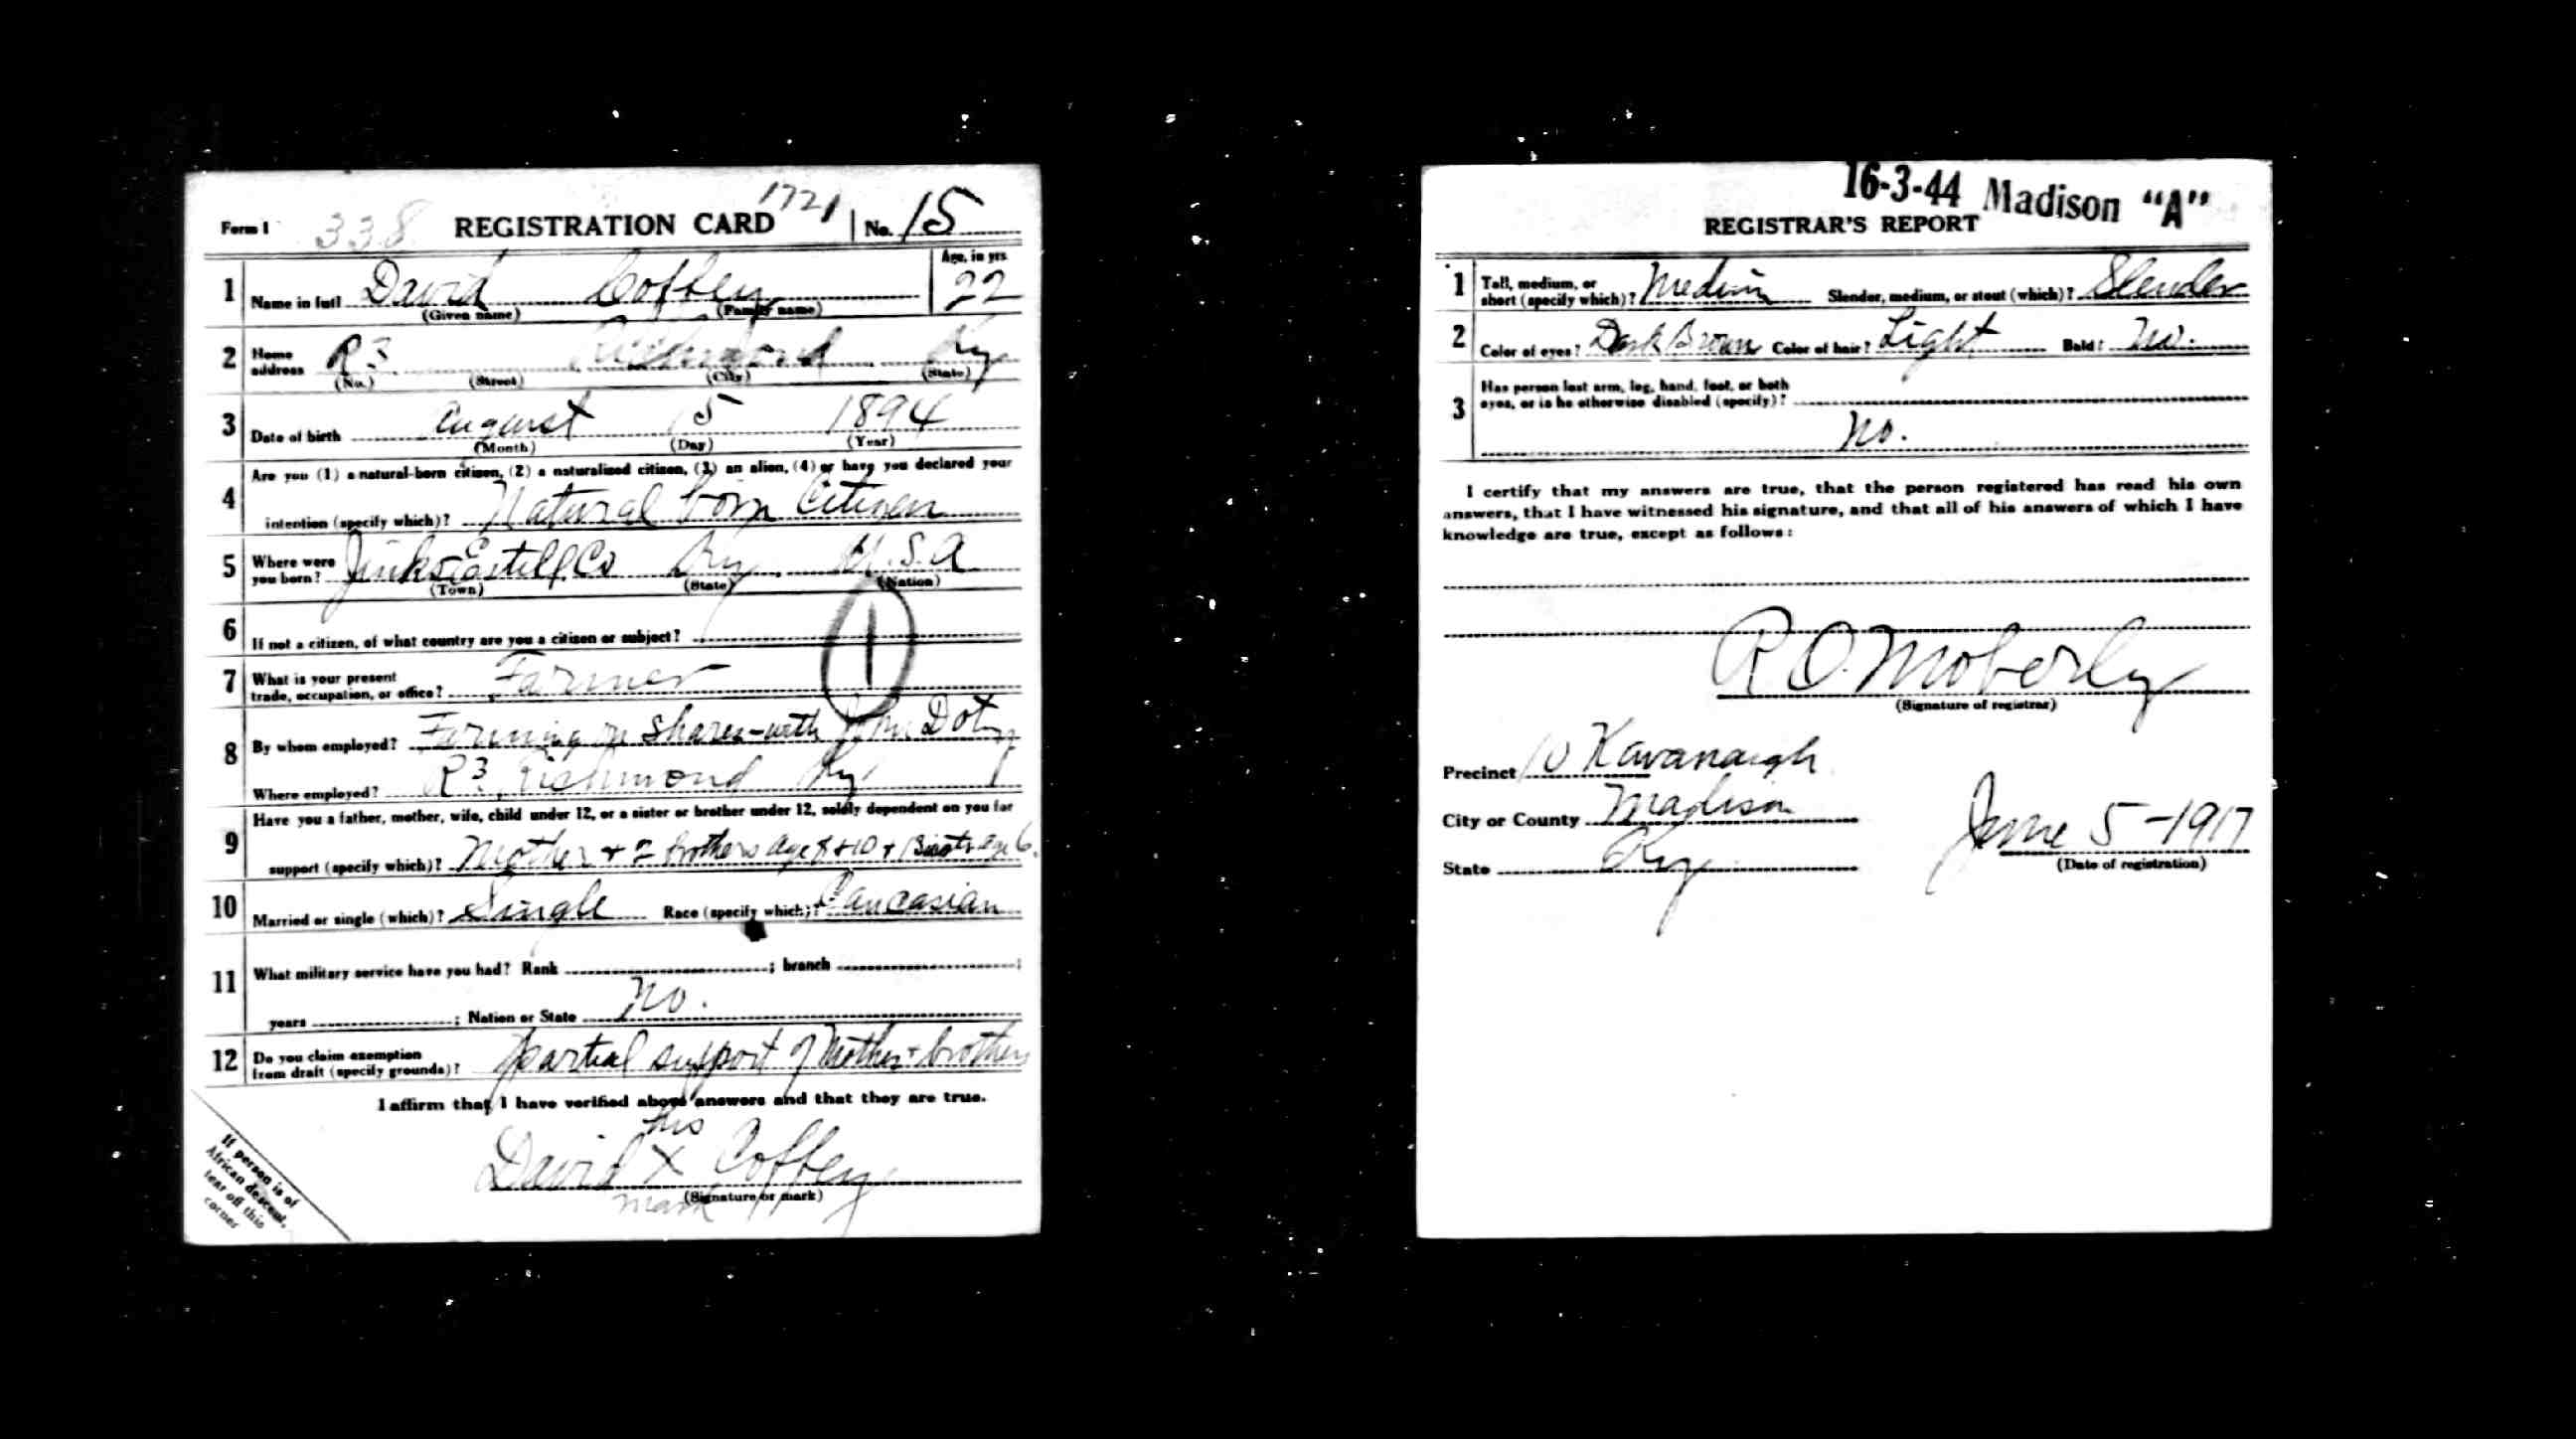 1721
Form 1 338 REGISTRATION CARD No. 15
1 Name in full David Coffey Age, in yrs. 22
(Given name) (Family name)
2 Home address R3 Richmond Ky
(No.) (Street) (City) (State)
3 Date of birth August 15 1894
(Month) (Day) (Year)
4 Are you (1) a natural-born citizen, (2) a naturalized citizen, (3) an alien, (4) or have you declared your
intention (specify which)? Natural born Citizen
5 Where were you born? Jinks Estill Co Ky. U.S.A
(Town) (State) (Nation)
6 If not a citizen, of what country are you a citizen or subject?
1
7 What is your present trade, occupation, or office? Farmer
8 By whom employed? Farming on shares-with John Doty
Where employed? R3 Richmond Ky
9 Have you a father, mother, wife, child under 12, or a sister or brother under 12, solely dependent on you for
support (specify which)? Mother + 2 brothers age 8 + 10 + 1 sister age 6.
10 Married or single (which)? Single Race (specify which)? Caucasian
11 What military service have you had? Rank ; branch ;
years ; Nation or State No.
12 Do you claim exemption from draft (specify grounds)? partial support of Mother + brothers
I affirm that I have verified above answers and that they are true.
his
David X Coffey
mark (Signature or mark)
If person is of
African descent,
tear off this
corner
16-3-44 Madison "A"
REGISTRAR'S REPORT
1 Tall, medium, or short (specify which)? Medium Slender, medium, or stout (which)? Slender
2 Color of eyes? Dark Brown Color of hair? Light Bald? No.
3 Has person lost arm, leg, hand, foot, or both
eyes, or is he otherwise disabled (specify)?
No.
I certify that my answers are true, that the person registered has read his own
answers, that I have witnessed his signature, and that all of his answers of which I have
knowledge are true, except as follows:
R O. Moberly
(Signature of registrar)
Precinct 10 Kavanaugh
City or County Madison
State Ky
June 5-1917
(Date of registration)